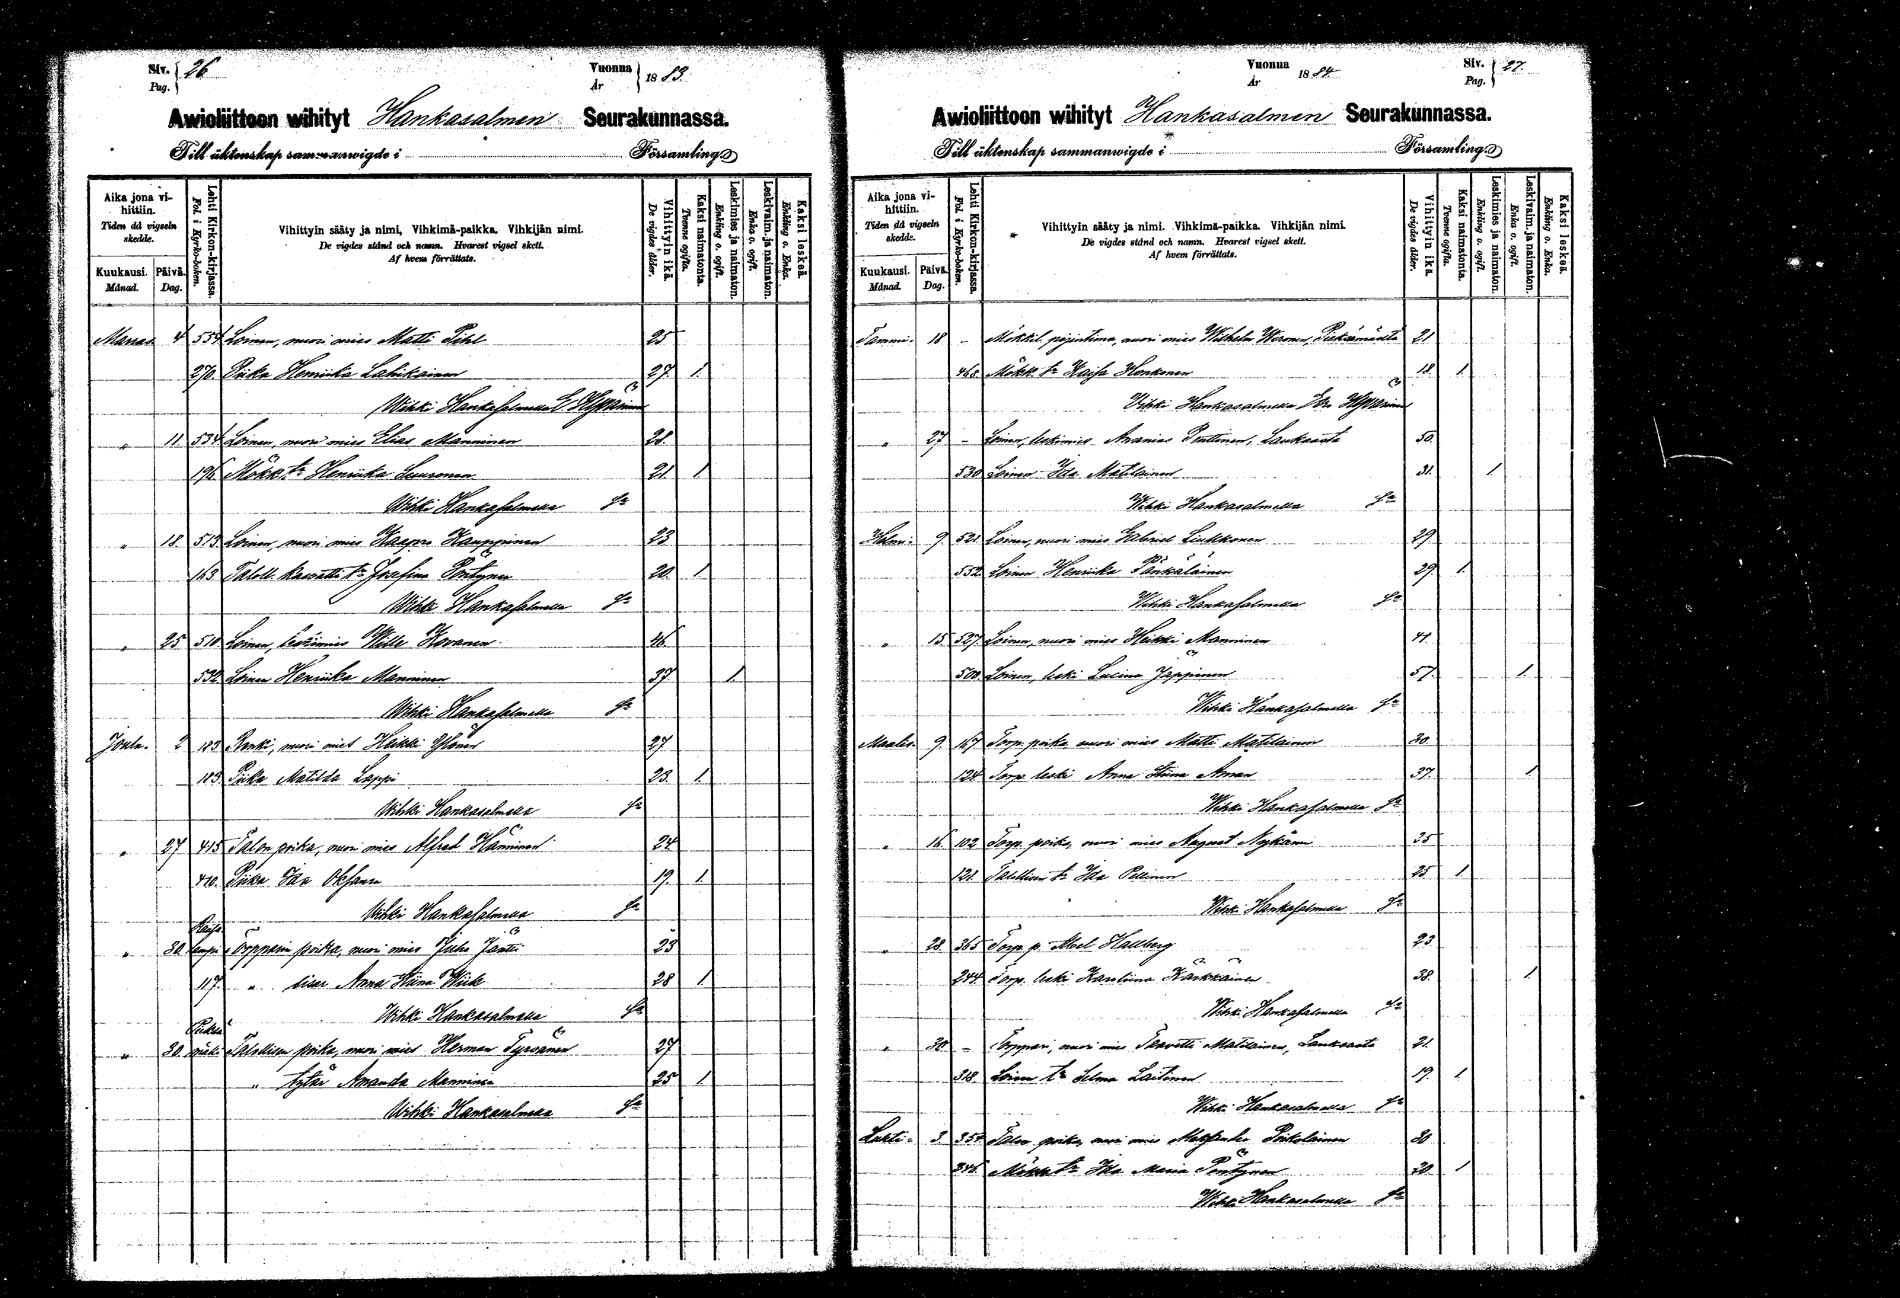 Siv. 26
Pag.
Vuonna 1883.
År
Awioliittoon wihityt Hankasalmen Seurakunnassa.
Till äktenskap sammanwigde i Församling
Aika jona vihittiin.
Tiden då vigseln skedde.
Kuukausi.
Månad.
Päivä.
Dag.
Lehti Kirkon-kirjassa.
Fol. i Kyrko-boken.
Vihittyin sääty ja nimi, Vihkimä-paikka. Vihkijän nimi.
De vigdes stånd och namn. Hvarest vigsel skett.
Af hvem förrättats.
Vihittyin ikä.
De vigdes ålder.
Kaksi naimatonta.
Tvenne ogifta.
Leskimies ja naimaton.
Enkling o. ogift.
Leskivaim. ja naimaton.
Enka o. ogift.
Kaksi leskeä.
Enkling o. Enka.
Marras. 4 554 Loinen, nuori mies Matti Pihl 25
270. Piika Henriika Laukkainen 27. 1.
Wihki Hankasalmella
" 11. 534 Loinen, nuori mies Elias Manninen 28.
196 Mökk. tr Henriika Luuronen 21. 1.
Wihki Hankasalmella
" 18. 513. Loinen, nuori mies Kasper Kauppinen 23
163 Taloll. kasvatti tr Josefina Pöntynen 20. 1.
Wihki Hankasalmella
" 25 510. Loinen, leskimies Wille Kovanen 46.
532. Loinen Henriika Manninen 37 1.
Wihki Hankasalmella
Joulu. 2 183 Renki, nuori mies Heikki Ylönen 27
183. Piika Matilda Lappi 23. 1.
Wihki Hankasalmella
" 27 415 Talon poika, nuori mies Alfred Hänninen 24.
410. Piika Ida Oksanen 19. 1.
Wihki Hankasalmella
" 30. Rautalampi Torpparin poika, nuori mies Juho Jäntti 23
117. " sisar Anna Stiina Wiik 28 1.
Wihki Hankasalmella
" 30. Pieksämäki Talollisen poika, nuori mies Herman Tyrvänen 27
" tytär Amanda Manninen 25 1.
Wihki Hankasalmella
Vuonna 1884
År
Siv. 27.
Pag.
Awioliittoon wihityt Hankasalmen Seurakunnassa.
Till äktenskap sammanwigde i Församling
Aika jona vihittiin.
Tiden då vigseln skedde.
Kuukausi.
Månad.
Päivä.
Dag.
Lehti Kirkon-kirjassa.
Fol. i Kyrko-boken.
Vihittyin sääty ja nimi. Vihkimä-paikka. Vihkijän nimi.
De vigdes stånd och namn. Hvarest vigsel skett.
Af hvem förrättats.
Vihittyin ikä.
De vigdes ålder.
Kaksi naimatonta.
Tvenne ogifta.
Leskimies ja naimaton.
Enkling o. ogift.
Leskivaim. ja naimaton.
Enka o. ogift.
Kaksi leskeä.
Enkling o. Enka.
Tammi. 18 - nuori mies Wilhelm Pieksämäeltä 21
468. Mökk. tr Kaisa Honkonen 18. 1
Vihki Hankasalmella
" 27 - Loinen, leskimies Ananias Penttinen, Laukaasta 50.
530 Loinen Ida Matilainen 31. 1
Wihki Hankasalmella
Helmi. 9. 521. Loinen, nuori mies Gabriel Liukkonen 29
532 Loinen Henriika Pänkäläinen 29. 1.
Wihki Hankasalmella
" 15. 527. Loinen, nuori mies Heikki Manninen 41
500. Loinen, leski Jäppinen 57. 1.
Wihki Hankasalmella
Maalis. 9. 167 Torp. poika, nuori mies Matti Matilainen 30.
124 Torp. leski Anna Stiina 37. 1.
Wihki Hankasalmella
" 16. 102 Torp. poika, nuori mies August Nykänen 35
121. Talollisen tr Ida Pellinen 25. 1
Wihki Hankasalmella
" 28. 365 Torp. p. Abel Hallberg 23
244. Torp. leski Karoliina Kärkkäinen 38. 1
Wihki Hankasalmella
" 30. - Torppari, nuori mies Taavetti Matilainen, Laukaasta 21.
318. Loisen tr Selma Laitinen 19. 1.
Wihki Hankasalmella
Huhti. 3. 354 Talon poika, nuori mies Poikolainen 30
346 Mökk. tr Ida Maria Pöntynen 20. 1
Wihki Hankasalmella